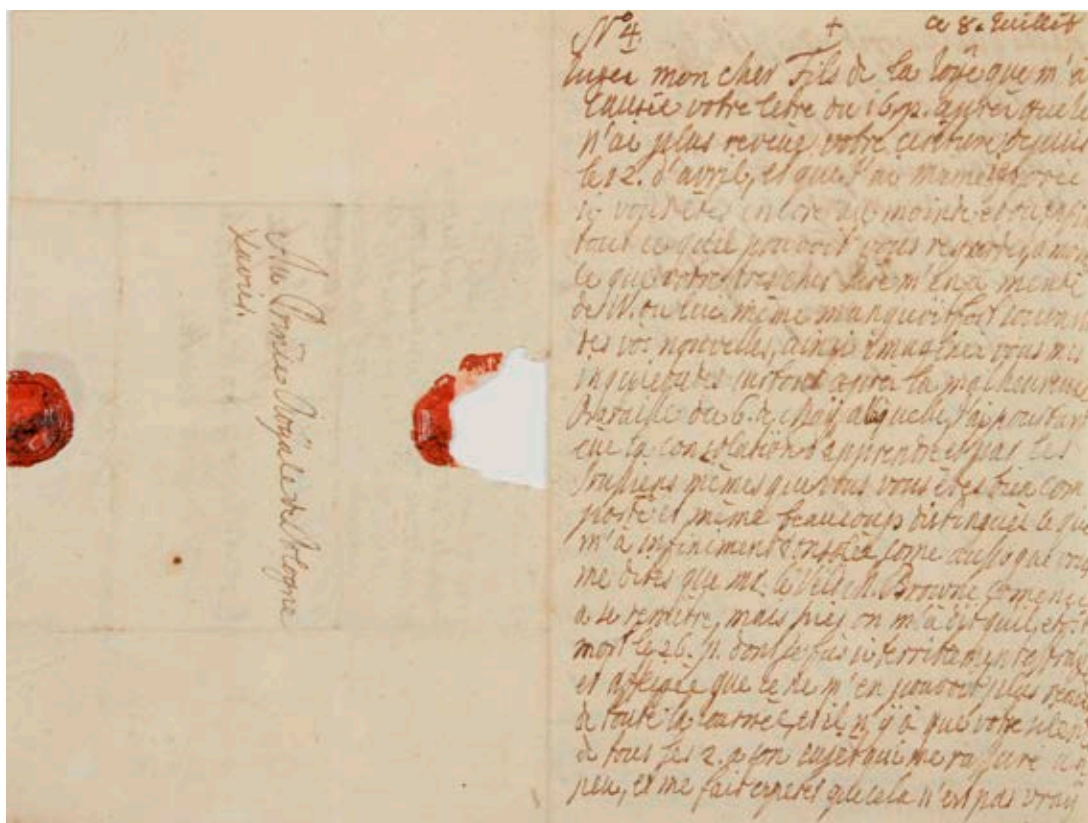 Au Prince Royale de Pologne
Xavier.
N° 4. + ce 8. Juillet
Jugéz mon cher Fils de la Joÿe que m'a
causée votre letre du 16. p. aprés que Je
n'ai plus reveüe votre ecriture depuis
le 12. d'avril, et que J'ai même
si vous êtes encore au monde et
tout ce qu'il pouvoit vous regarder, a moins
ce que votre tres cher Pere m'en a mendé
de W. ou lui même manquoit fort souvent
des vos nouvelles, ainsi imaginéz vous mes
inquietudes surtout aprés la malheureuse
Bataille du 6. de may a la quelle J'ai pourtant
eüe la consolation d'apprendre et par les
même que vous vous êtes bien com
porté et même beaucoup distinguée ce que
m'a infiniment consolée come aussi que vous
me dites que mr. le Velt M. Browne comence
a se remettre, mais hier on m'a dit qu'il est
mort le 26. p. dont Je fus si terriblement
et affligée que Je ne m'en pouvois plus
de toute la Journée, et il n'y a que votre silence
de tous les 2. a son sujet qui me rassure un
peu, et me fait esperer que cela n'est pas vraÿ